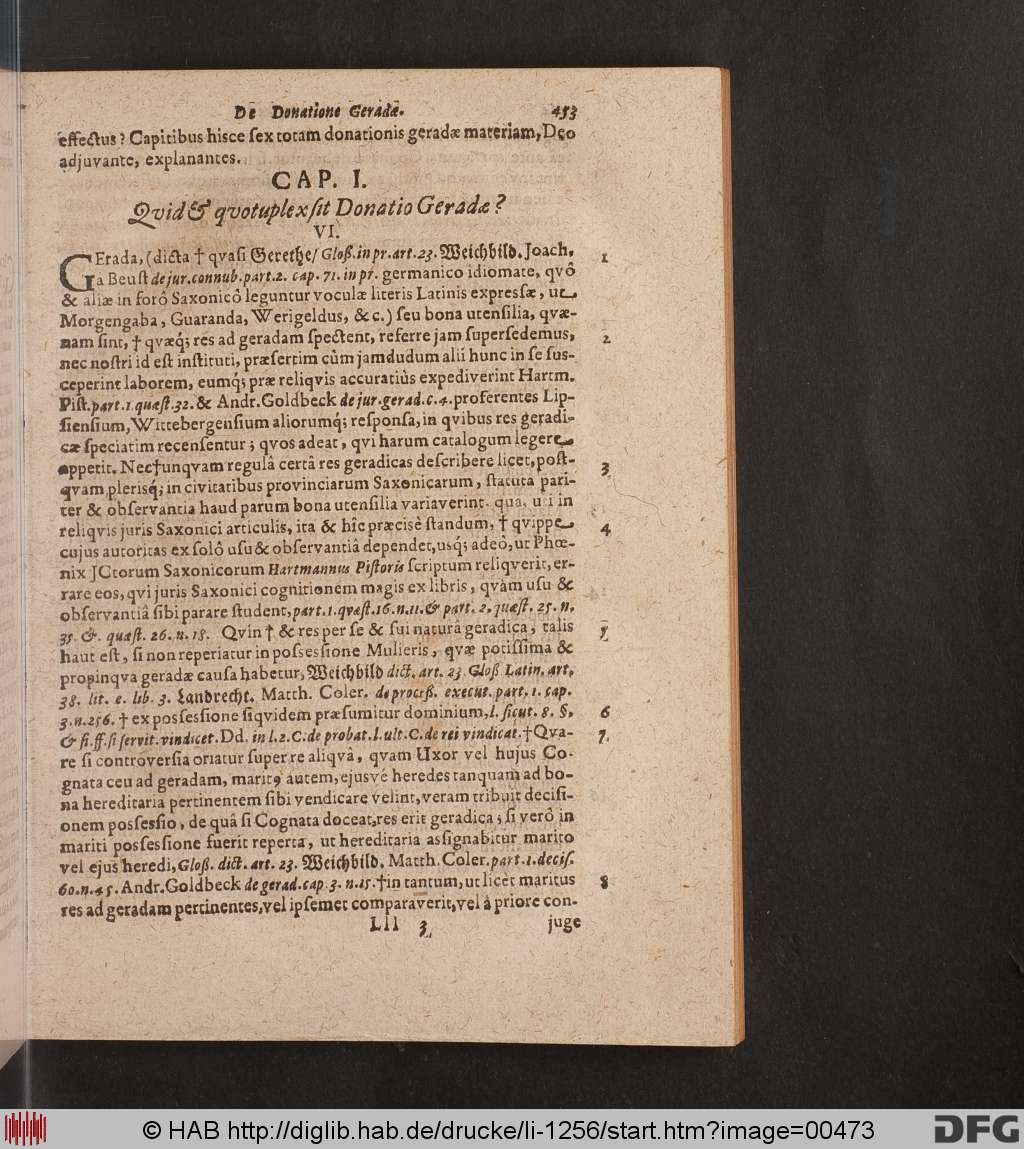 De Donatione Geradæ. 453
effectus? Capitibus hisce sex totam donationis geradæ materiam, Deo
adjuvante, explanantes.
CAP. I.
Qvid & qvotuplex sit Donatio Geradæ?
VI.
GErada, (dicta † qvasi Gerethe/ Gloß. in pr. art. 23. Weichbild. Joach. 1
a Beust de jur. connub. part. 2. cap. 71. in pr. germanico idiomate, qvô
& aliæ in forô Saxonicô leguntur voculæ literis Latinis expressæ, ut
Morgengaba, Guaranda, Werigeldus, &c.) seu bona utensilia, qvæ-
nam sint, † qvæq; res ad geradam spectent, referre jam supersedemus, 2
nec nostri id est instituti, præsertim cùm jamdudum alii hunc in se sus-
ceperint laborem, eumq́; præ reliqvis accuratiùs expediverint Hartm.
Pist. part. 1. quæst. 32. & Andr. Goldbeck de jur. gerad. c. 4. proferentes Lip-
siensium, Wittebergensium aliorumq́; responsa, in qvibus res geradi-
cæ speciatim recensentur; qvos adeat, qvi harum catalogum legere
appetit. Nec † unqvam regulâ certâ res geradicas describere licet, post- 3
qvam plerisq́; in civitatibus provinciarum Saxonicarum, statuta pari-
ter & observantia haud parum bona utensilia variaverint. qua, uti in
reliqvis juris Saxonici articulis, ita & hîc præcisè standum, † qvippe 4
cujus autoritas ex solô usu & observantiâ dependet, usq́; adeò, ut Phœ-
nix JCtorum Saxonicorum Hartmannus Pistoris scriptum reliqverit, er-
rare eos, qvi juris Saxonici cognitionem magis ex libris, qvàm usu &
observantiâ sibi parare student, part. 1. qvæst. 16. n. 11. & part. 2. quæst. 25. n.
35. &. quæst. 26. n. 18. Qvin † & res per se & sui naturâ geradica, talis 5
haut est, si non reperiatur in possessione Mulieris, qvæ potissima &
propinqva geradæ causa habetur, Weichbild dict. art. 23 Gloß Latin. art.
38. lit. e. lib. 3. Landrecht. Matth. Coler. de proceß. execut. part. 1. cap.
3. n. 256. † ex possessione siqvidem præsumitur dominium, l. sicut. 8. §. 6
& si. ff. si servit. vindicet. Dd. in l. 2. C. de probat. l. ult. C. de rei vindicat. † Qva- 7.
re si controversia oriatur super re aliqvâ, qvam Uxor vel hujus Co-
gnata ceu ad geradam, maritꝰ autem, ejusvé heredes tanquam ad bo-
na hereditaria pertinentem sibi vendicare velint, veram tribuit decisi-
onem possessio, de quâ si Cognata doceat, res erit geradica; si verò in
mariti possessione fuerit reperta, ut hereditaria assignabitur marito
vel ejus heredi, Gloß. dict. art. 23. Weichbild. Matth. Coler. part. 1. decis.
60. n. 45. Andr. Goldbeck de gerad. cap. 3. n. 15. † in tantum, ut licèt maritus 8
res ad geradam pertinentes, vel ipsemet comparaverit, vel à priore con-
Lll 3 juge
© HAB http://diglib.hab.de/drucke/li-1256/start.htm?image=00473 DFG